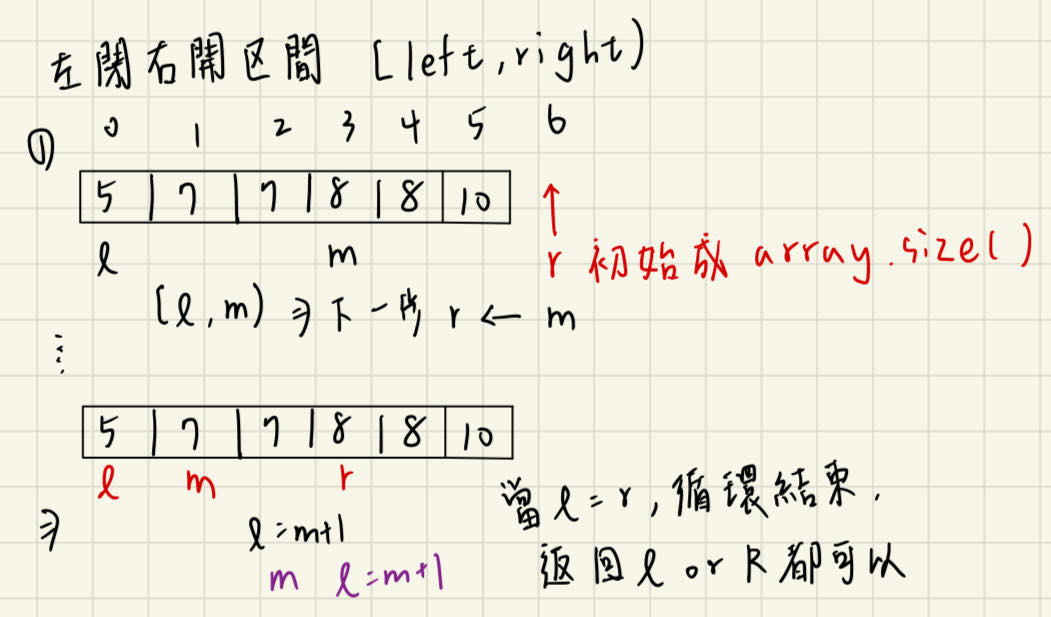 左閉右開区間 [left,right)
① 0 1 2 3 4 5 6
5 | 7 | 7 | 8 | 8 | 10 ↑
l m r 初始成 array.size()
[l,m) ⇒ 下一步 r ← m
⋮
5 | 7 | 7 | 8 | 8 | 10
l m r
當 l = r, 循環結束.
⇒ l=m+1
m l=m+1
返回 l or R 都可以